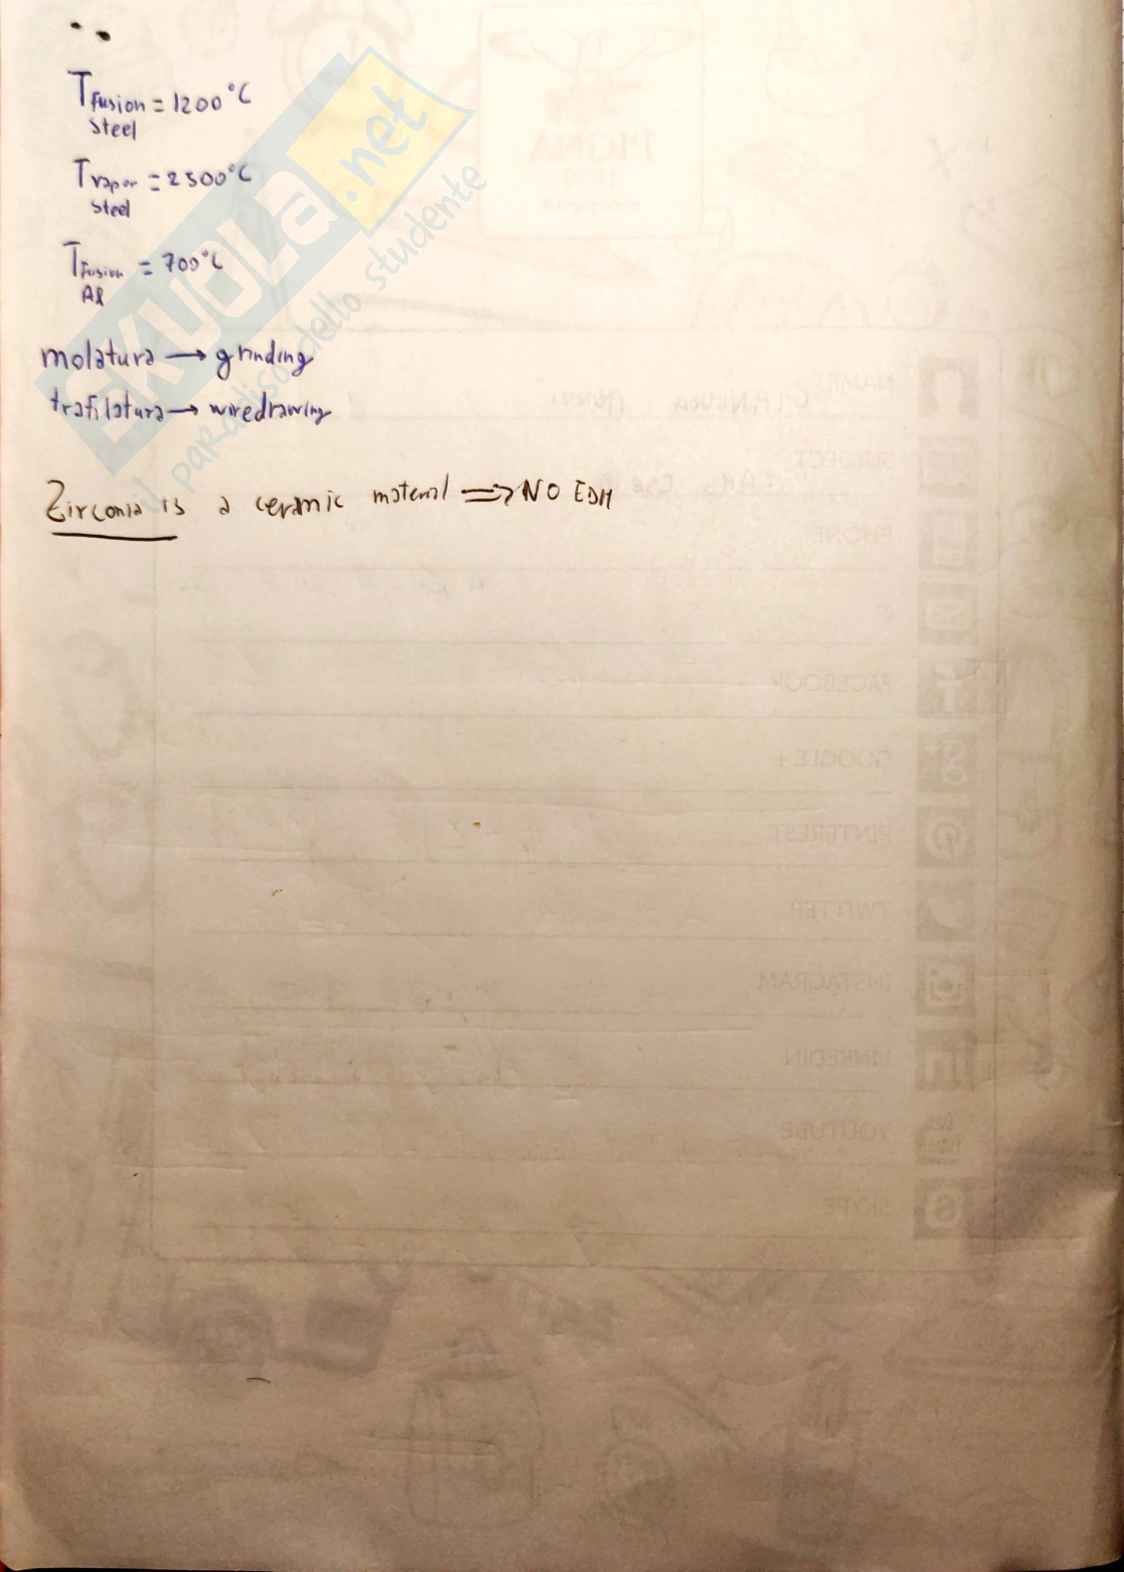 T fusion = 1200°C
steel
T vapor = 2500°C
steel
T fusion = 700°C
Al
molatura → grinding
trafilatura → wiredrawing
Zirconia is a ceramic material ⇒ NO EDM
SKUOLA.net
il paradiso dello studente
PIGNA
NAME
SUBJECT
PHONE
FACEBOOK
GOOGLE+
PINTEREST
TWITTER
INSTAGRAM
LINKEDIN
YOUTUBE
SKYPE